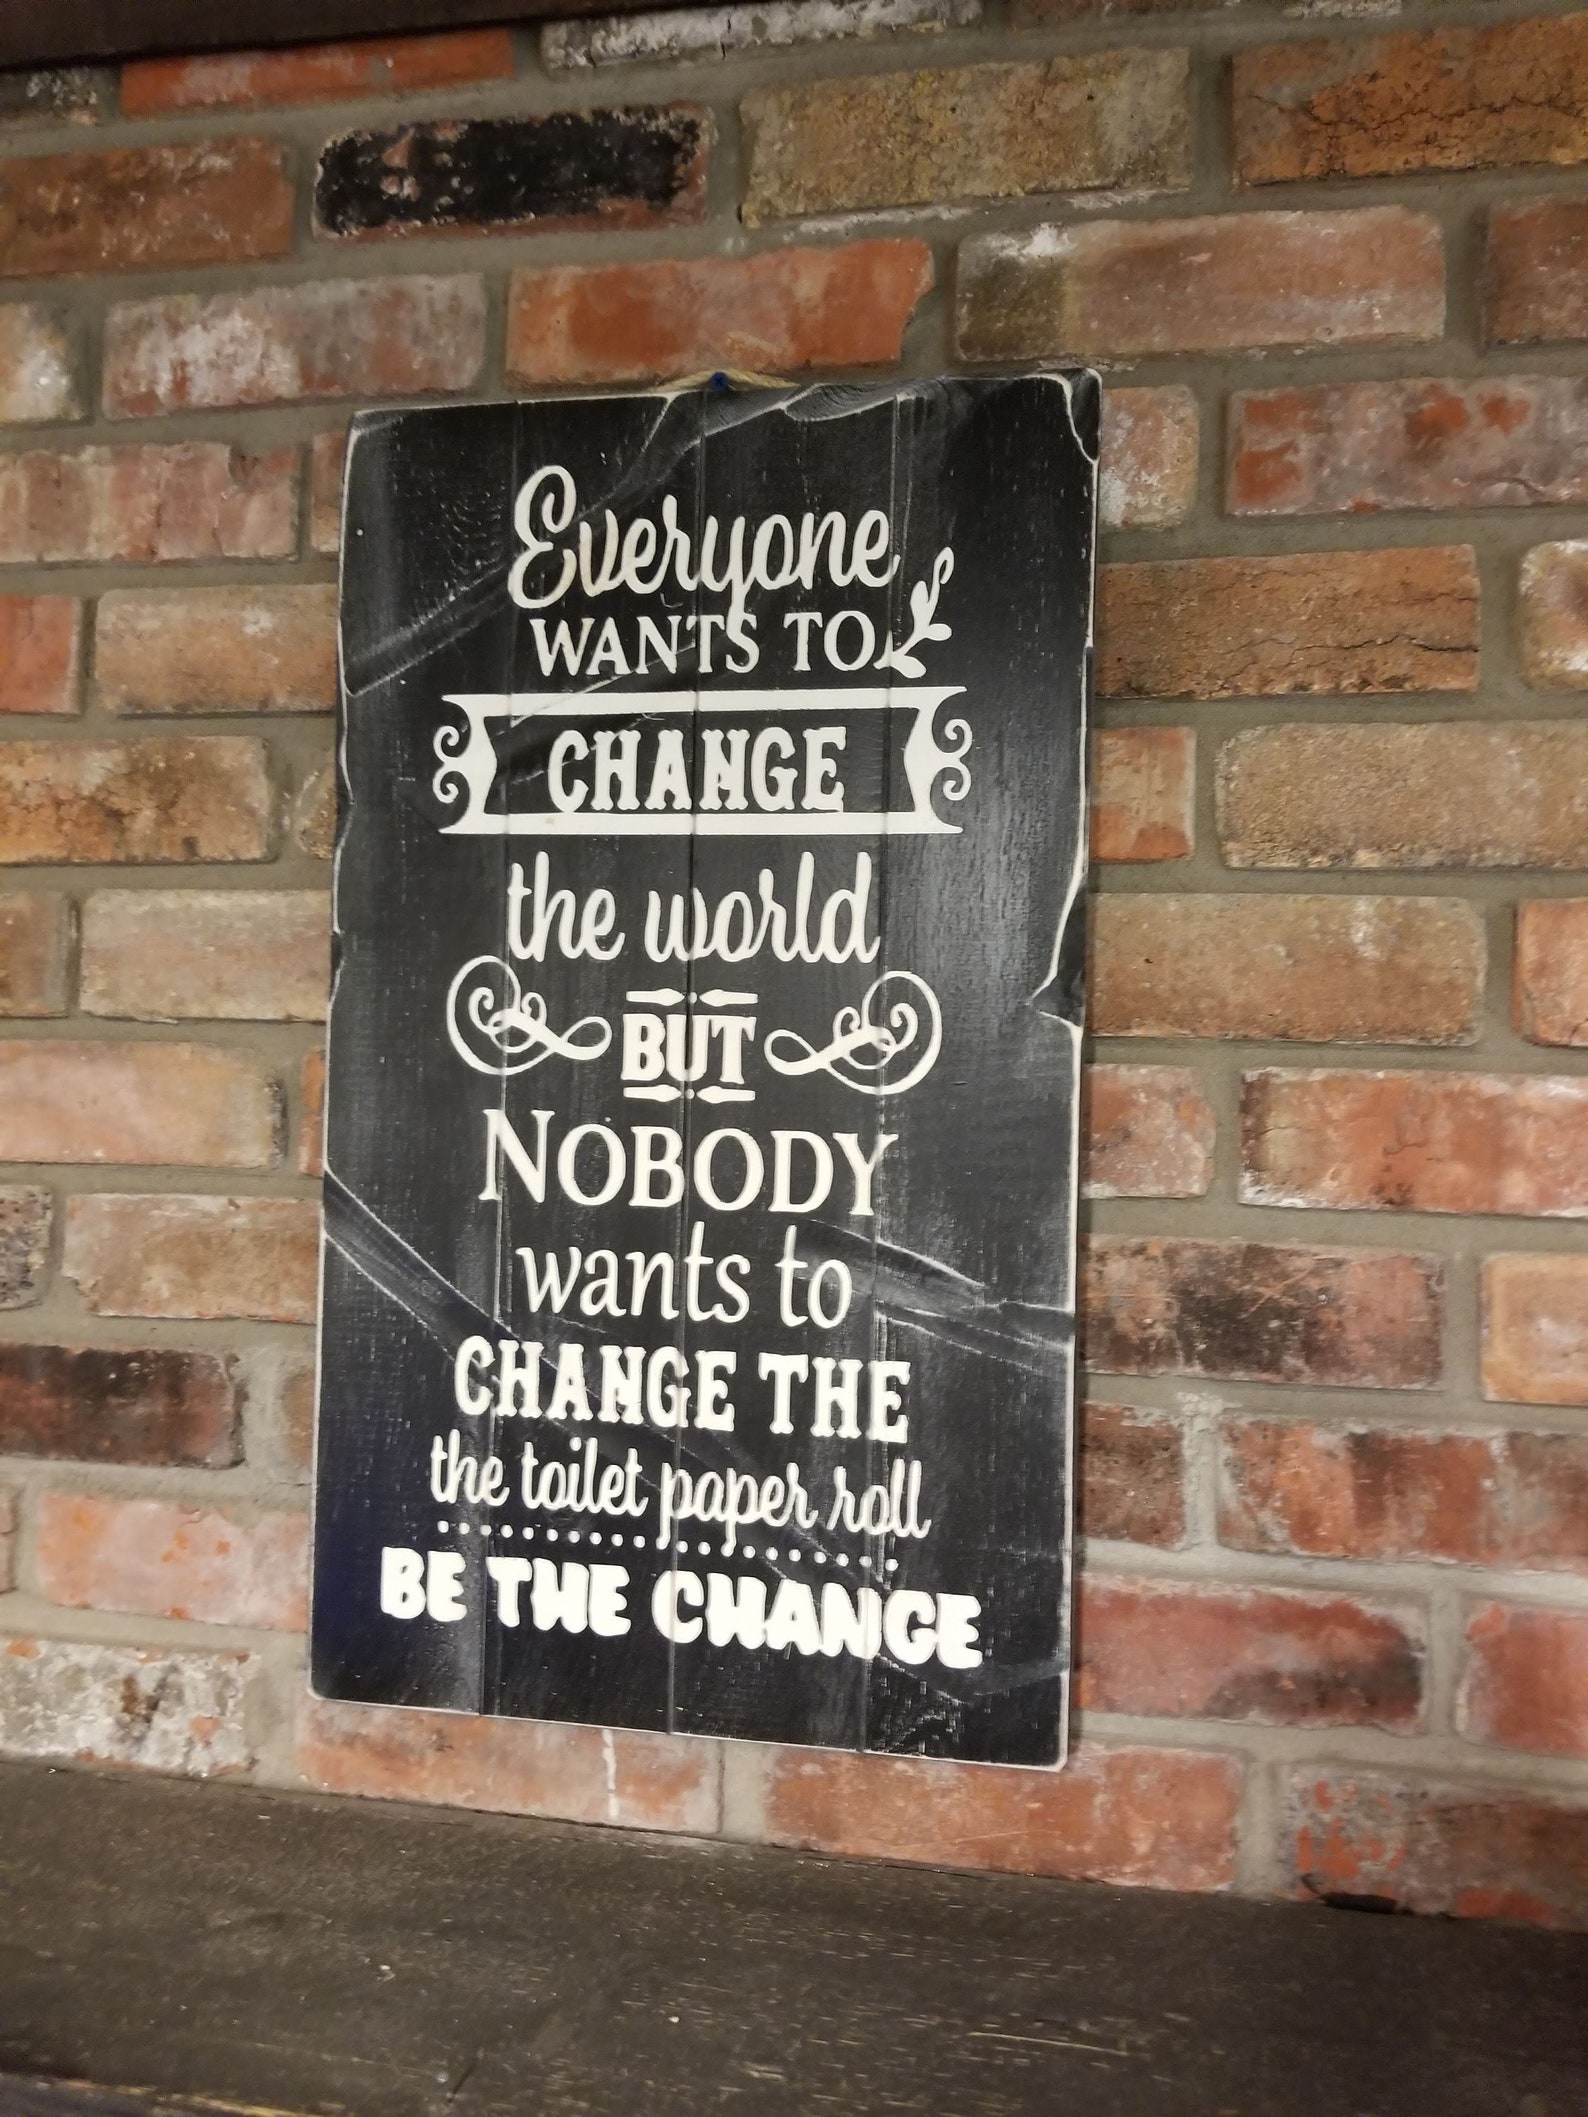 Everyone
WANTS TO
CHANGE
the world
BUT
NOBODY
wants to
CHANGE THE
the toilet paper roll
BE THE CHANGE